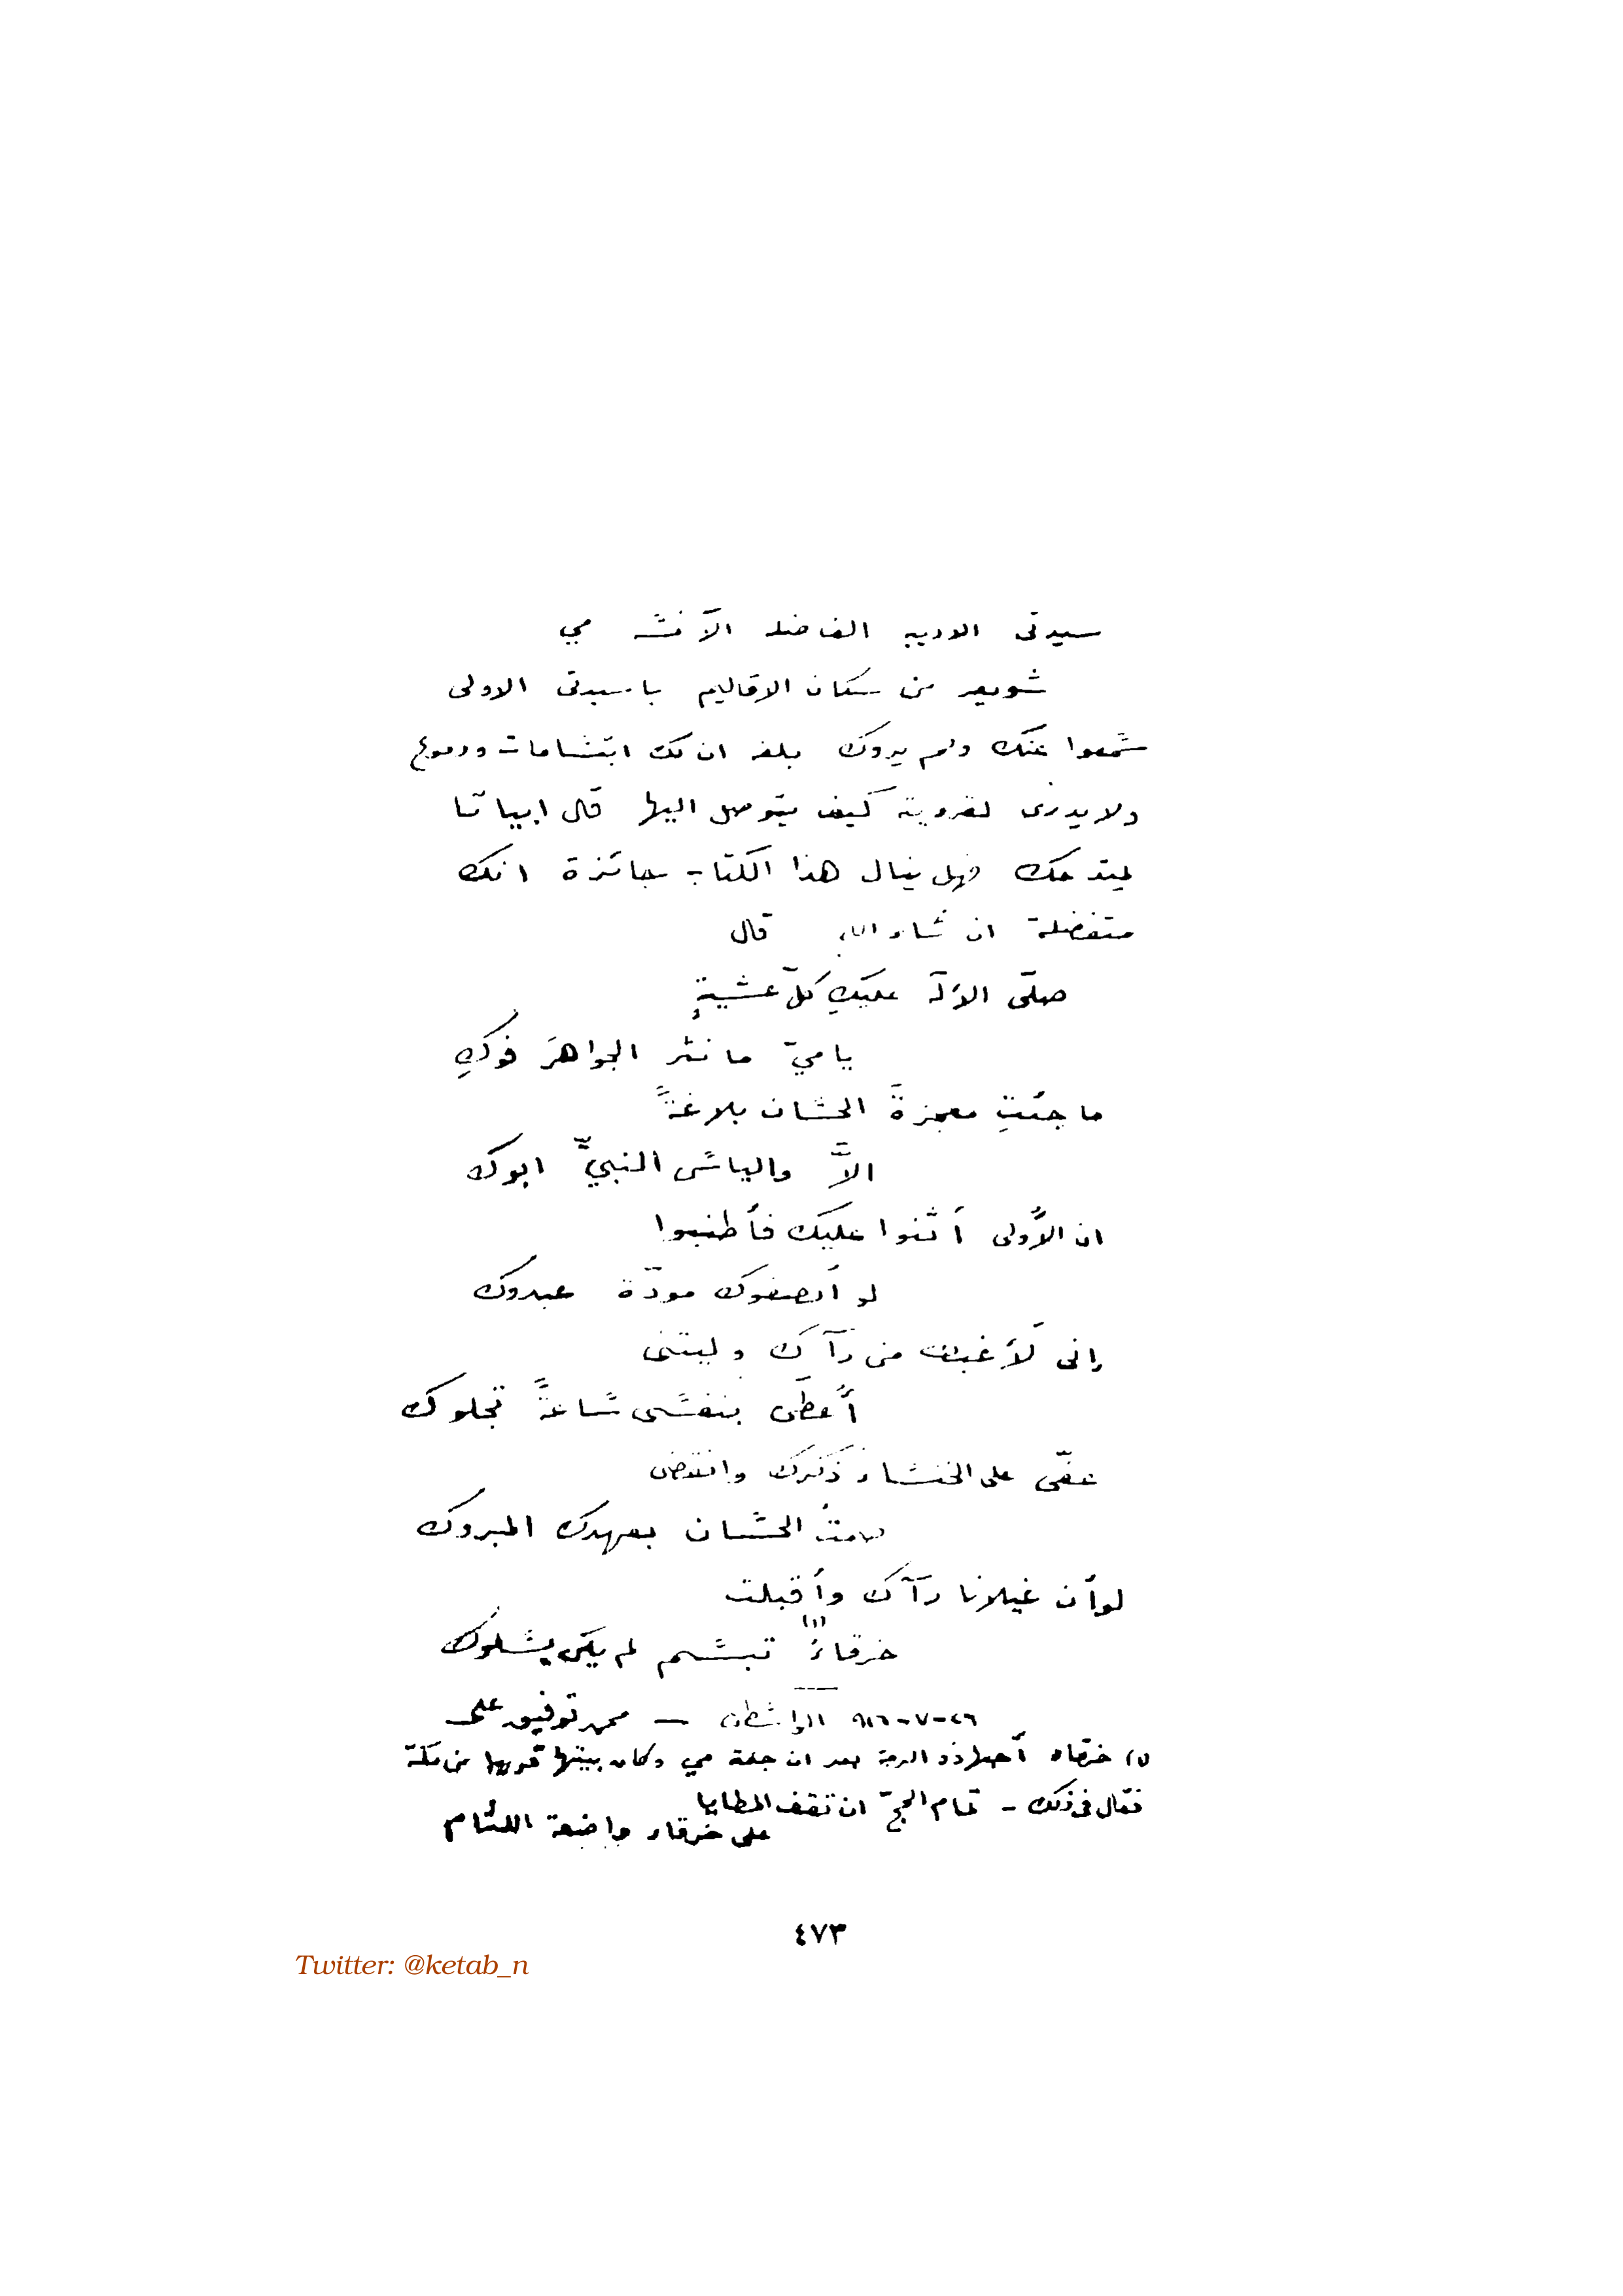 سيدتى الاديبه الفاضله الآنسه مي
شويعر من سكان الاقاليم يا سيدتى الاولى
سمعوا عنك ولم يروك بلغه ان لك ابتسامات ودموع
ولا يدرى لقرويته كيف يتوصل اليها قال ابياتا
يمتدحك فهل ينال هذا الكتاب جائزة انك
متفضلة ان شاء الله قال
صلّى الالآه عليكِ كلّ عشيةٍ
يا ميّ ما نثر الجواهرَ فوكِ
ما جئتِ معجزةَ الحسان بلاغةً
الاَّ والياس النبيُّ ابوك
ان الأُولى أثنوا عليك فأطنبوا
لو أنصفوك مودّة عبدوك
إنى لَأغبط من رآك وليتنى
أُعطى بنفسى ساعةً تجلوك
عفّى على الخنساء ذكرك وانقضى
صمتُ الحسان بعهدك المبروك
لو أن غيلانا رآك وأقبلت
خرقاءُ (١) تبسم لم يكن يسلوك
٢٦-٧-٩١٦ الواسطى — محمد توفيق على
(١) خرقاء أحبها ذو الرمة بعد ان جفته مي وكان بيتها قريبا من مكة
فقال فى ذلك - تمام الحجّ ان تقف المطايا
على خرقاء واضعة اللثام
٤٧٣
Twitter: @ketab_n